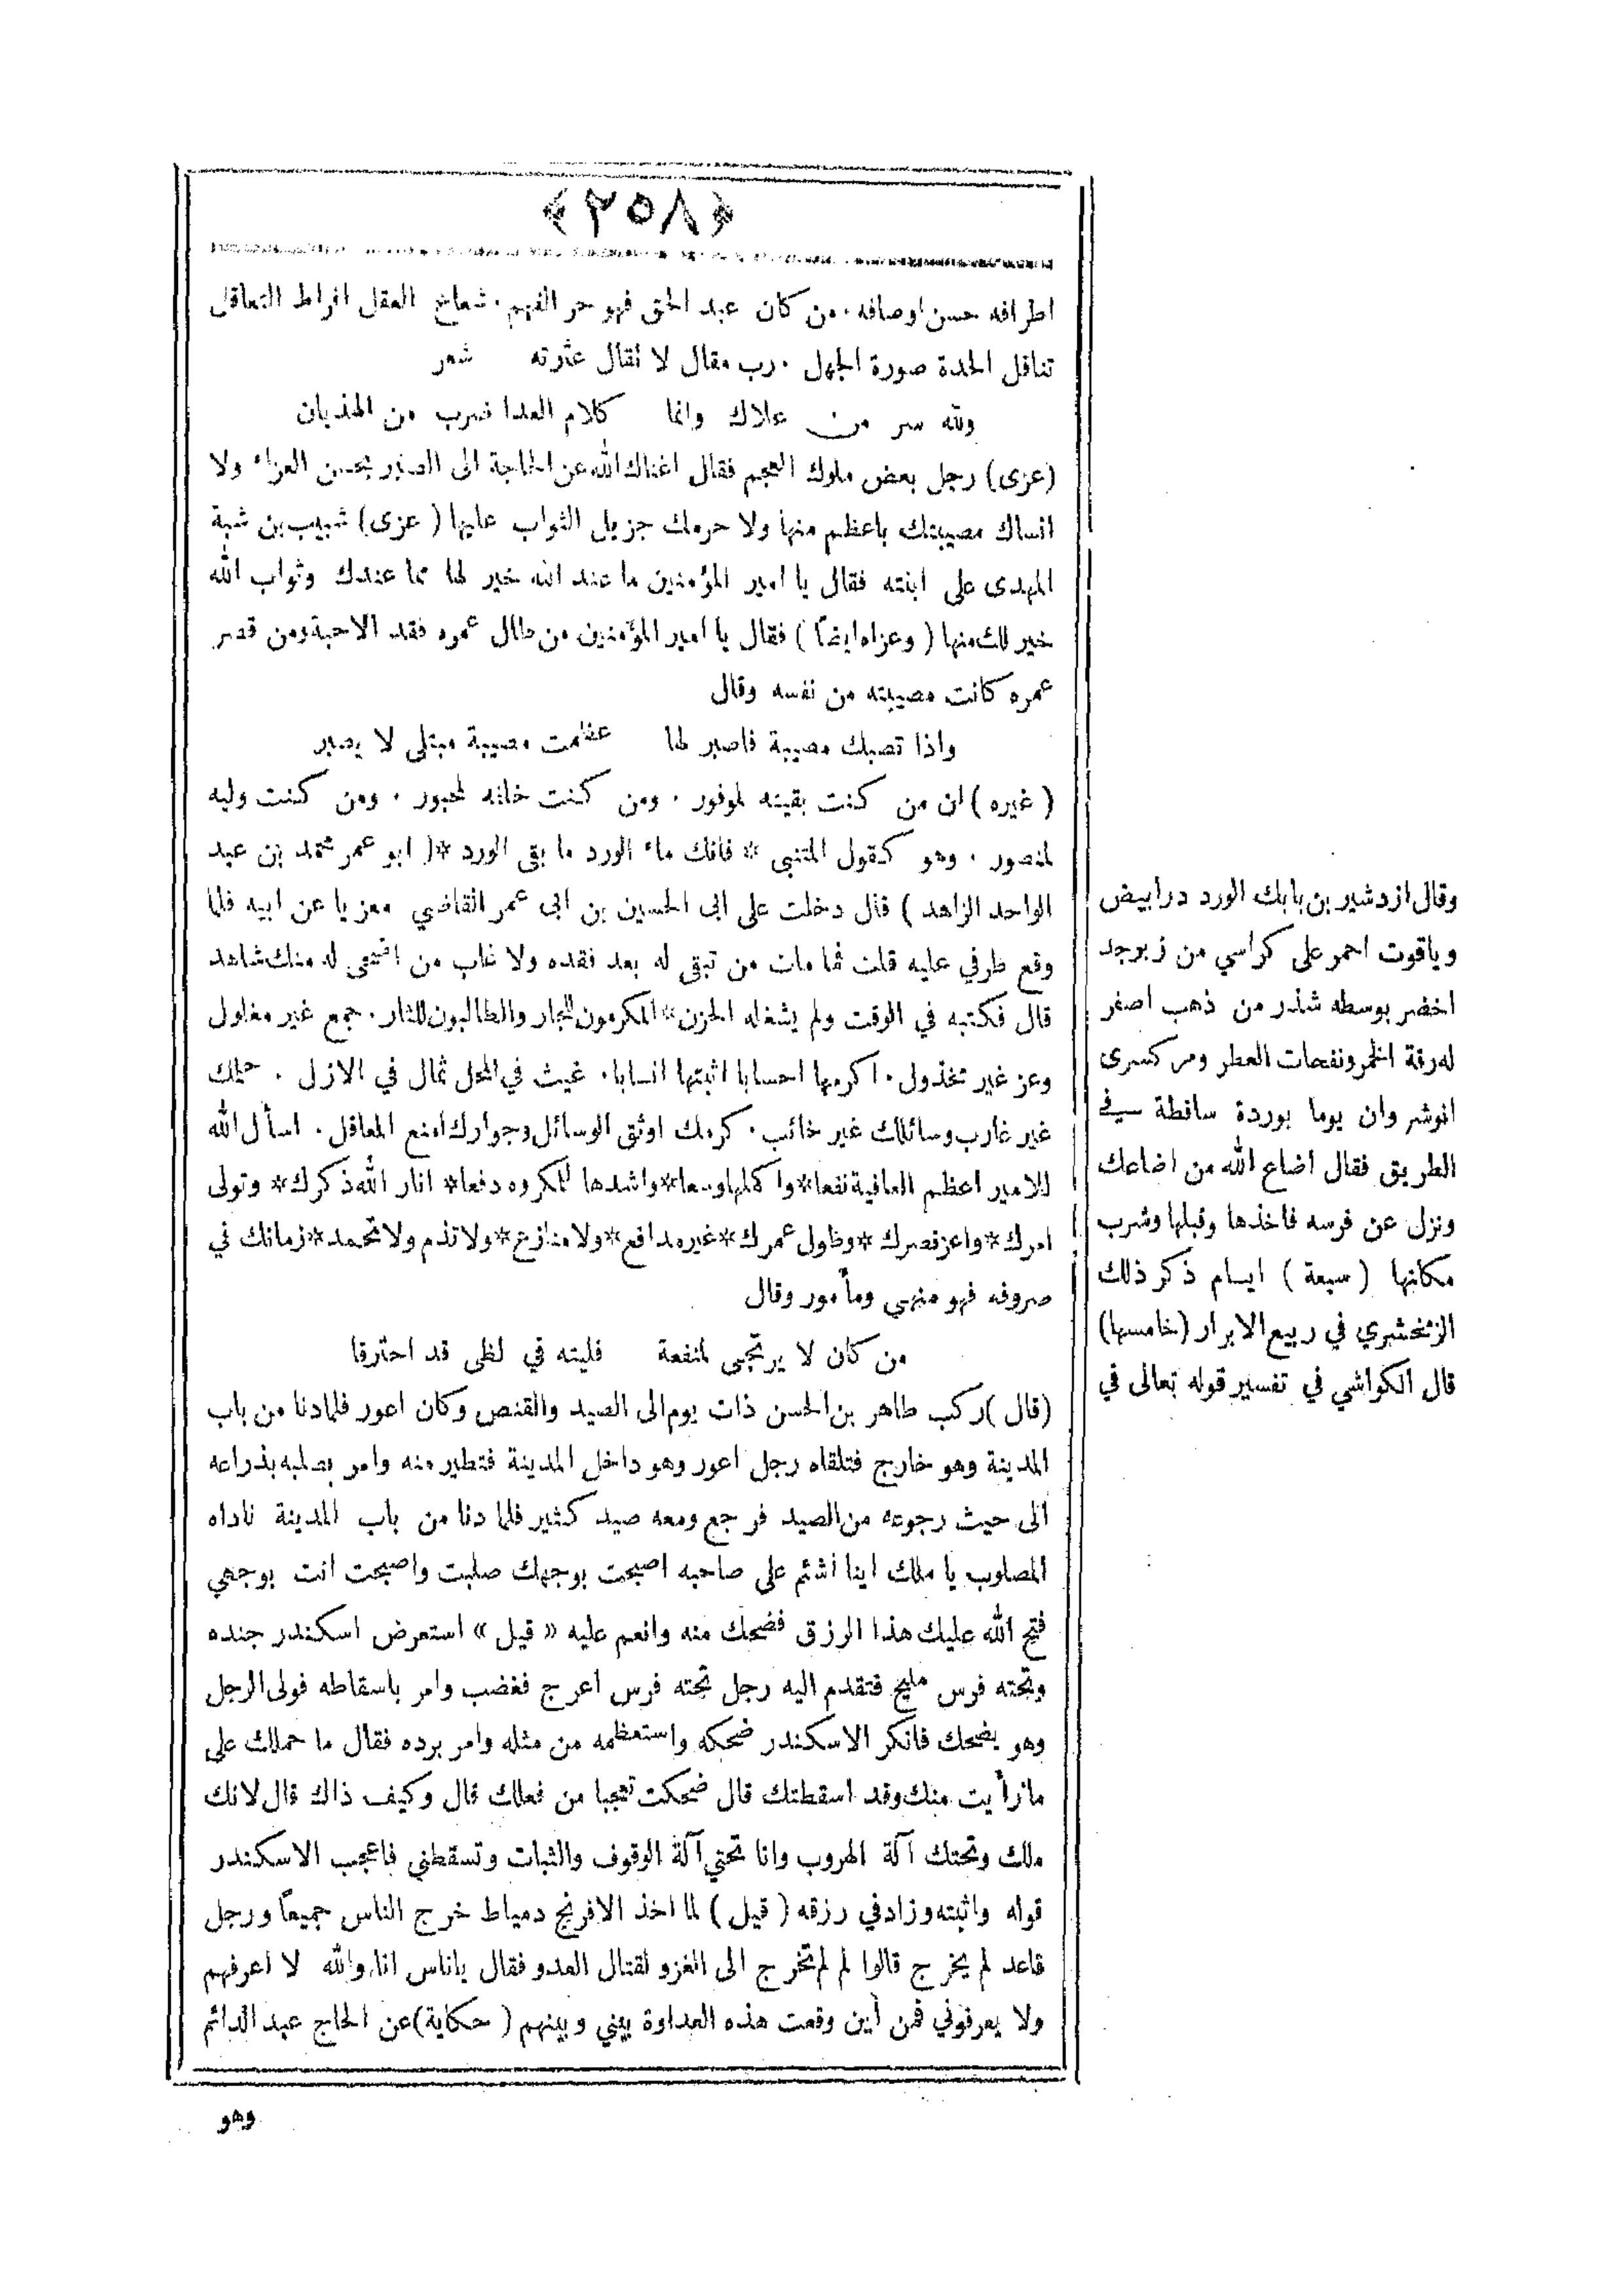 ﴿٢٥٨﴾
اطرافه حسن اوصافه . من كان عبد الحق فهو حر الفهم . شعاع العقل افراط التعاقل
تناقل الحدة صورة الجهل . رب مقال لا تقال عثرته شعر
ولله سر من علاك وانما كلام العدا ضرب من الهذيان
(عزى) رجل بعض ملوك العجم فقال اغناك الله عن الحاجة الى الصبر بحسن العزاء ولا
انساك مصيبتك باعظم منها ولا حرمك جزيل الثواب عليها (عزى) شبيب بن شبة
المهدى على ابنته فقال يا امير المؤمنين ما عند الله خير لها مما عندك وثواب الله
خير لك منها (وعزاه ايضاً) فقال يا امير المؤمنين من طال عمره فقد الاحبة ومن قصر
عمره كانت مصيبته من نفسه وقال
واذا تصبك مصيبة فاصبر لها عظمت مصيبة مبتلى لا يصبر
(غيره) ان من كنت بقيته لموفور . ومن كنت خلفه لمحبور . ومن كنت وليه
لمنصور . وهو كقول المتنبى * فانك ماء الورد ما بقى الورد * (ابو عمر محمد بن عبد
الواحد الزاهد) قال دخلت على ابى الحسين بن ابى عمر القاضي معزيا عن ابيه فلما
وقع طرفي عليه قلت فما مات من تبقى له بعد فقده ولا غاب من اضحى له منك شاهد
قال فكتبه في الوقت ولم يشغله الحزن * المكرمون للجار والطالبون للثار . جمع غير مغلول
وعز غير مخذول . اكرمها احسابا اثبتها انسابا . غيث في المحل ثمال في الازل . حملك
غير غارب وسائلك غير خائب . كرمك اوثق الوسائل وجوارك امنع المعاقل . اسأل الله
للامير اعظم العافية نفعا * واكملها وسعا * واشدها للمكروه دفعا * انار الله ذكرك * وتولى
امرك * واعز نصرك * وطول عمرك * غير مدافع * ولا منازع * ولا تذم ولا تحمد * زمانك في
صروفه فهو منهي ومأمور وقال
من كان لا يرتجى لمنفعة فليته في لظى قد احترقا
(قال) ركب طاهر بن الحسن ذات يوم الى الصيد والقنص وكان اعور فلما دنا من باب
المدينة وهو خارج فتلقاه رجل اعور وهو داخل المدينة فتطير منه وامر بصلبه بذراعه
الى حيث رجوعه من الصيد فرجع ومعه صيد كثير فلما دنا من باب المدينة ناداه
المصلوب يا ملك اينا اشئم على صاحبه اصبحت بوجهك صلبت واصبحت انت بوجهي
فتح الله عليك هذا الرزق فضحك منه وانعم عليه «قيل» استعرض اسكندر جنده
وتحته فرس مليح فتقدم اليه رجل تحته فرس اعرج فغضب وامر باسقاطه فولى الرجل
وهو يضحك فانكر الاسكندر ضحكه واستعظمه من مثله وامر برده فقال ما حملك على
ما رأيت منك وقد اسقطتك قال ضحكت تعجبا من فعلك قال وكيف ذاك قال لانك
ملك وتحتك آلة الهروب وانا تحتي آلة الوقوف والثبات وتسقطني فاعجب الاسكندر
قوله واثبته وزاد في رزقه (قيل) لما اخذ الافرنج دمياط خرج الناس جميعاً ورجل
قاعد لم يخرج قالوا لم لم تخرج الى الغزو لقتال العدو فقال ياناس انا والله لا اعرفهم
ولا يعرفوني فمن أين وقعت هذه العداوة بيني وبينهم (حكاية) عن الحاج عبد الدائم
وهو
وقال ازدشير بن بابك الورد در ابيض
وياقوت احمر على كراسي من زبرجد
اخضر بوسطه شذر من ذهب اصفر
له رقة الخمر ونفحات العطر ومر كسرى
انوشروان يوما بوردة ساقطة في
الطريق فقال اضاع الله من اضاعك
ونزل عن فرسه فاخذها وقبلها وشرب
مكانها (سبعة) ايام ذكر ذلك
الزمخشري في ربيع الابرار (خامسها)
قال الكواشي في تفسير قوله تعالى في